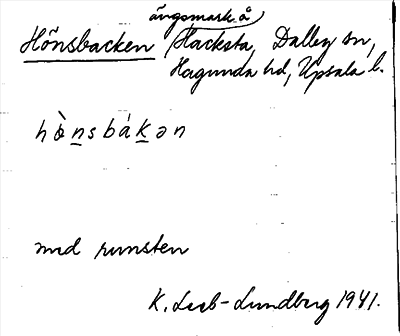 ängsmark å
Hönsbacken Hacksta, Dalby sn,
Hagunda hd, Upsala l.
hö̀nsbákən
med runsten
K. Leeb-Lundberg 1941.